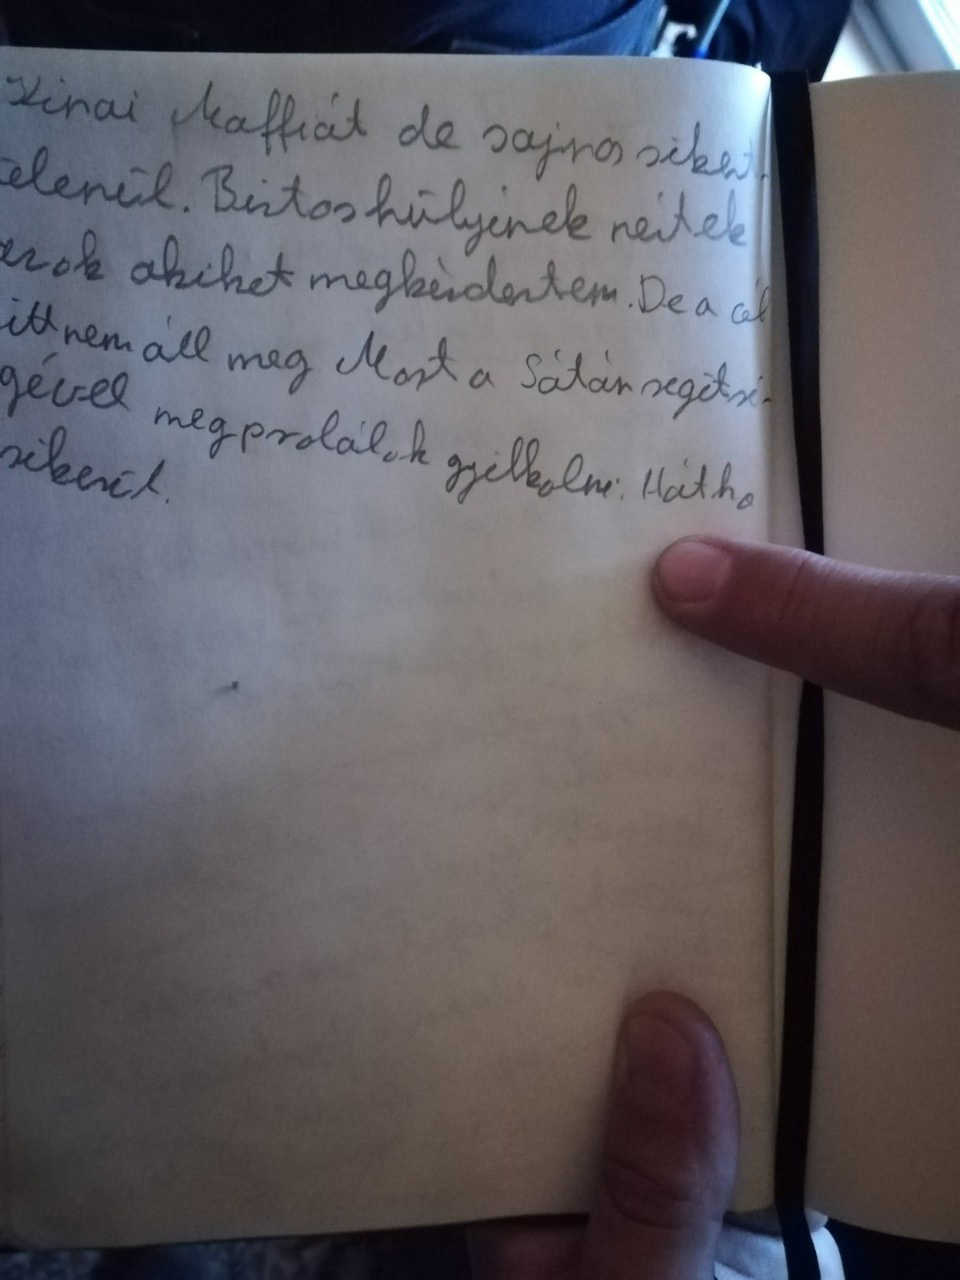 Kinai Maffiát de sajnos sikert-
elenül. Biztos hülyének néztek
azok akiket megkérdeztem. De a cél
itt nem áll meg Most a Sátán segitsé-
gével megprolálok gyilkolni. Hát ha
sikerül.